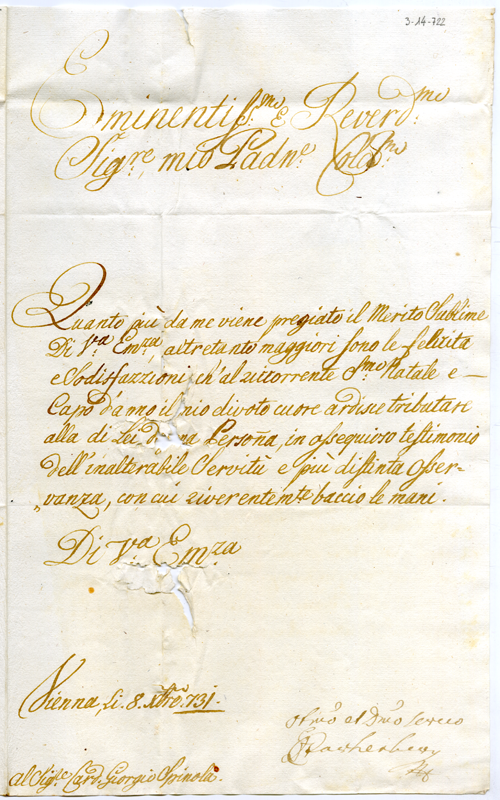 3-14-722
Eminentiss.mo e Reverd.mo
Sig.re, mio Padne Colds.mo
Quanto più da me viene pregiato il Merito Sublime
Di V.ra Em.za, altretanto maggiori sono le felicità
e Sodisfazzioni, ch'al ricorrente S.mo Natale e
Capo d'anno il mio divoto cuore ardisce tributare
alla di Lei Persona, in ossequioso testimonio
dell'inalterabile Servitù e più distinta Osser-
vanza, con cui riverentem.te baccio le mani.
Di V.ra Em.za
Vienna, li 8. Xbre 731.
al Sig.re Card. Giorgio Spinola.